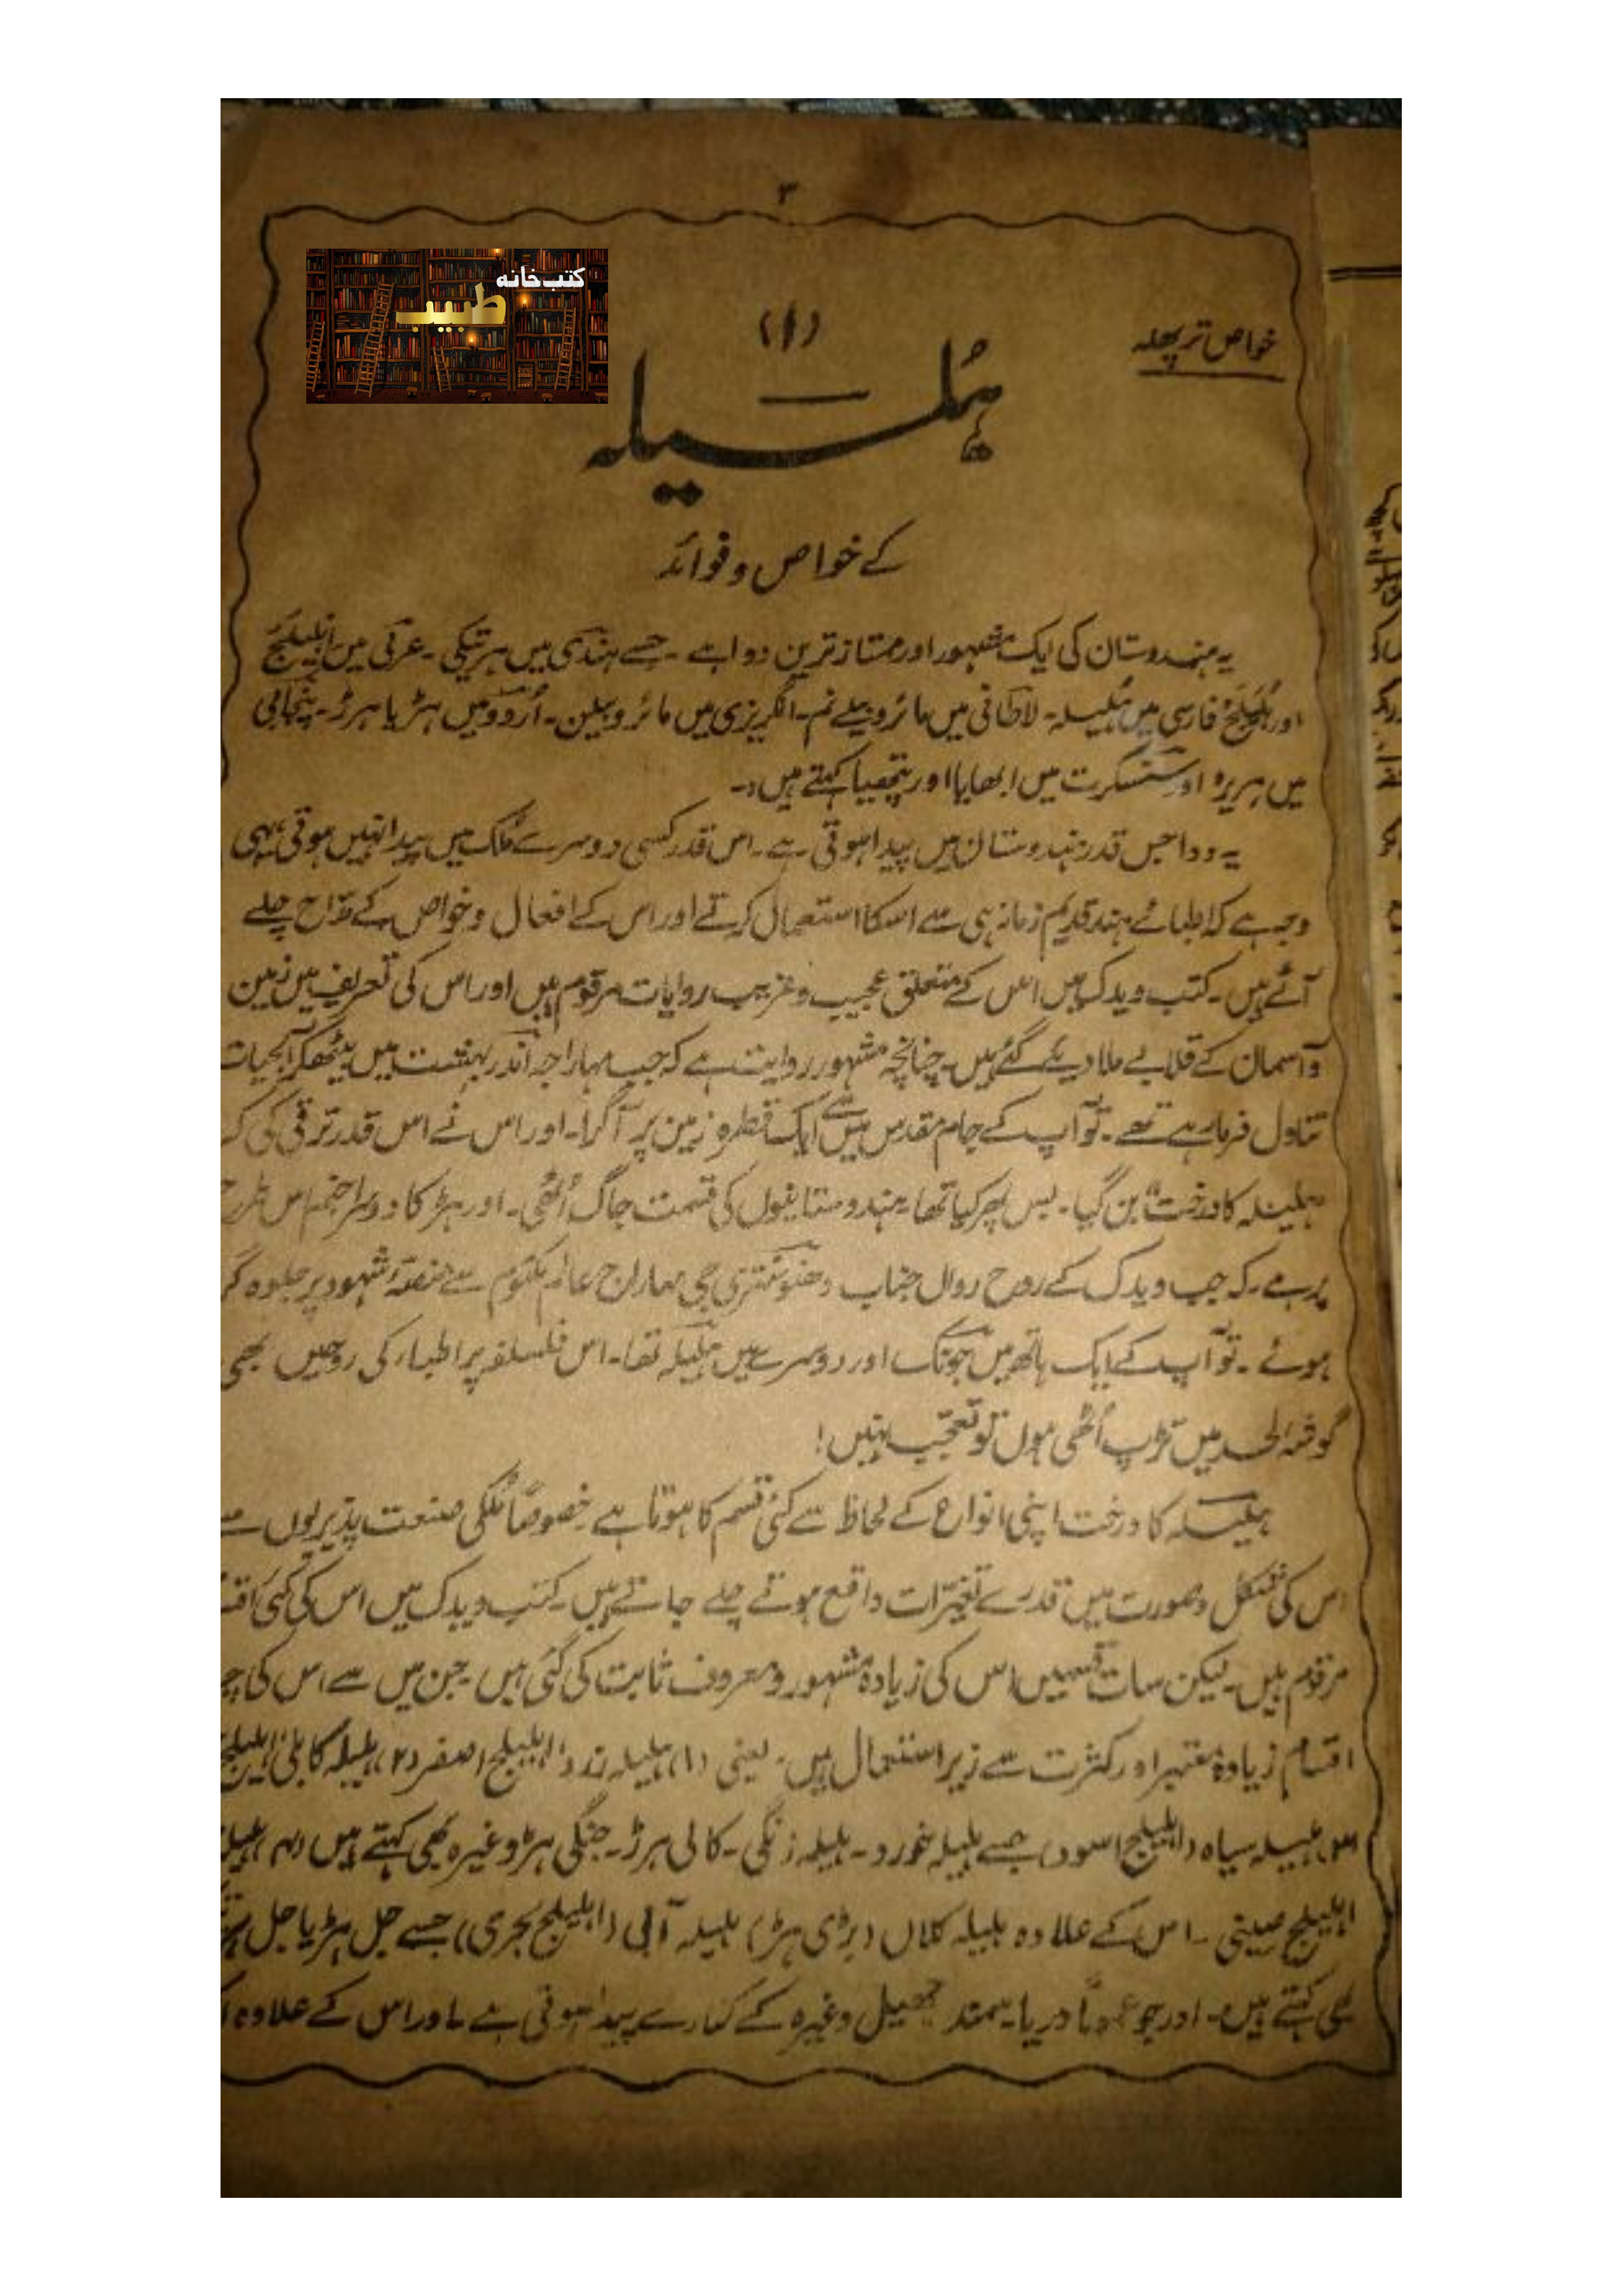 ۳
کتب خانہ
طبیب
خواص تر پھلہ
(۱)
ہلیلہ
کے خواص و فوائد
یہ ہندوستان کی ایک مشہور اور ممتاز ترین دوا ہے ۔ جسے ہندی میں ہرتیکی ۔ عربی میں اہلیلج
اور ہلیلج فارسی میں ہلیلہ ۔ لاطانی میں مائروبیلے نم ۔ انگریزی میں مائروبیلین ۔ اُردو میں ہڑ یا ہرڑ ۔ پنجابی
میں ہریڑہ اور سنسکرت میں ابھایا اور پتھیا کہتے ہیں :۔
یہ دوا جس قدر ہندوستان میں پیدا ہوتی ہے ۔ اس قدر کسی دوسرے ملک میں پیدا نہیں ہوتی ، یہی
وجہ ہے کہ اطبائے ہند قدیم زمانہ ہی سے اسکا استعمال کرتے اور اس کے افعال و خواص کے مدّاح چلے
آئے ہیں ۔ کتب ویدک میں اس کے متعلق عجیب و غریب روایات مرقوم ہیں اور اس کی تعریف میں زمین
و آسمان کے قلابے ملا دیئے گئے ہیں ۔ چنانچہ مشہور روایت ہے کہ جب مہاراجہ اندر بہشت میں بیٹھکر آبحیات
تناول فرما رہے تھے ۔ تو آپ کے جام مقدس میں سے ایک قطرہ زمین پر آ گرا ۔ اور اس نے اس قدر ترقی کی کہ
ہلیلہ کا درخت بن گیا ۔ بس پھر کیا تھا ۔ ہندوستانیوں کی قسمت جاگ اُٹھی ۔ اور ہڑ کا دوسرا جنم اس طرح
پر ہے ۔ کہ جب ویدک کے روح رواں جناب دھنونتری جی مہاراج عالم مکتوم سے منصۂ شہود پر جلوہ گر
ہوئے ۔ تو آپ کے ایک ہاتھ میں جونک اور دوسرے میں ہلیلہ تھا ۔ اس فلسفہ پر اطباء کی روحیں بھی
گوشہ لحد میں تڑپ اُٹھی ہوں تو تعجب نہیں !
ہلیلہ کا درخت اپنی انواع کے لحاظ سے کئی قسم کا ہوتا ہے ۔ خصوصاً ملکی صنعت پذیریوں سے
اس کی شکل و صورت میں قدرے تغیرات واقع ہوتے چلے جاتے ہیں ۔ کتب ویدک میں اس کی کئی
مرقوم ہیں ۔ لیکن سات قسمیں اس کی زیادہ مشہور و معروف ثابت کی گئی ہیں ۔ جن میں سے اس کی
اقسام زیادہ معتبر اور کثرت سے زیر استعمال ہیں ۔ یعنی (۱) ہلیلہ زرد (اہلیلج اصفر (۲) ہلیلہ کابلی (اہلیلج
(۳) ہلیلہ سیاہ (اہلیلج اسود) جسے ہلیلہ خورد ۔ ہلیلہ زنگی ۔ کالی ہرڑ ۔ جنگی ہرڑ وغیرہ بھی کہتے ہیں (۴)
اہلیلج صینی ۔ اس کے علاوہ ہلیلہ کلاں (بڑی ہڑ) ہلیلہ آبی (اہلیلج بحری) جسے جل ہڑ یا جل
بھی کہتے ہیں ۔ اور جو عموماً دریا ۔ سمندر جھیل وغیرہ کے کنارے پیدا ہوتی ہے ۔ اور اس کے علاوہ